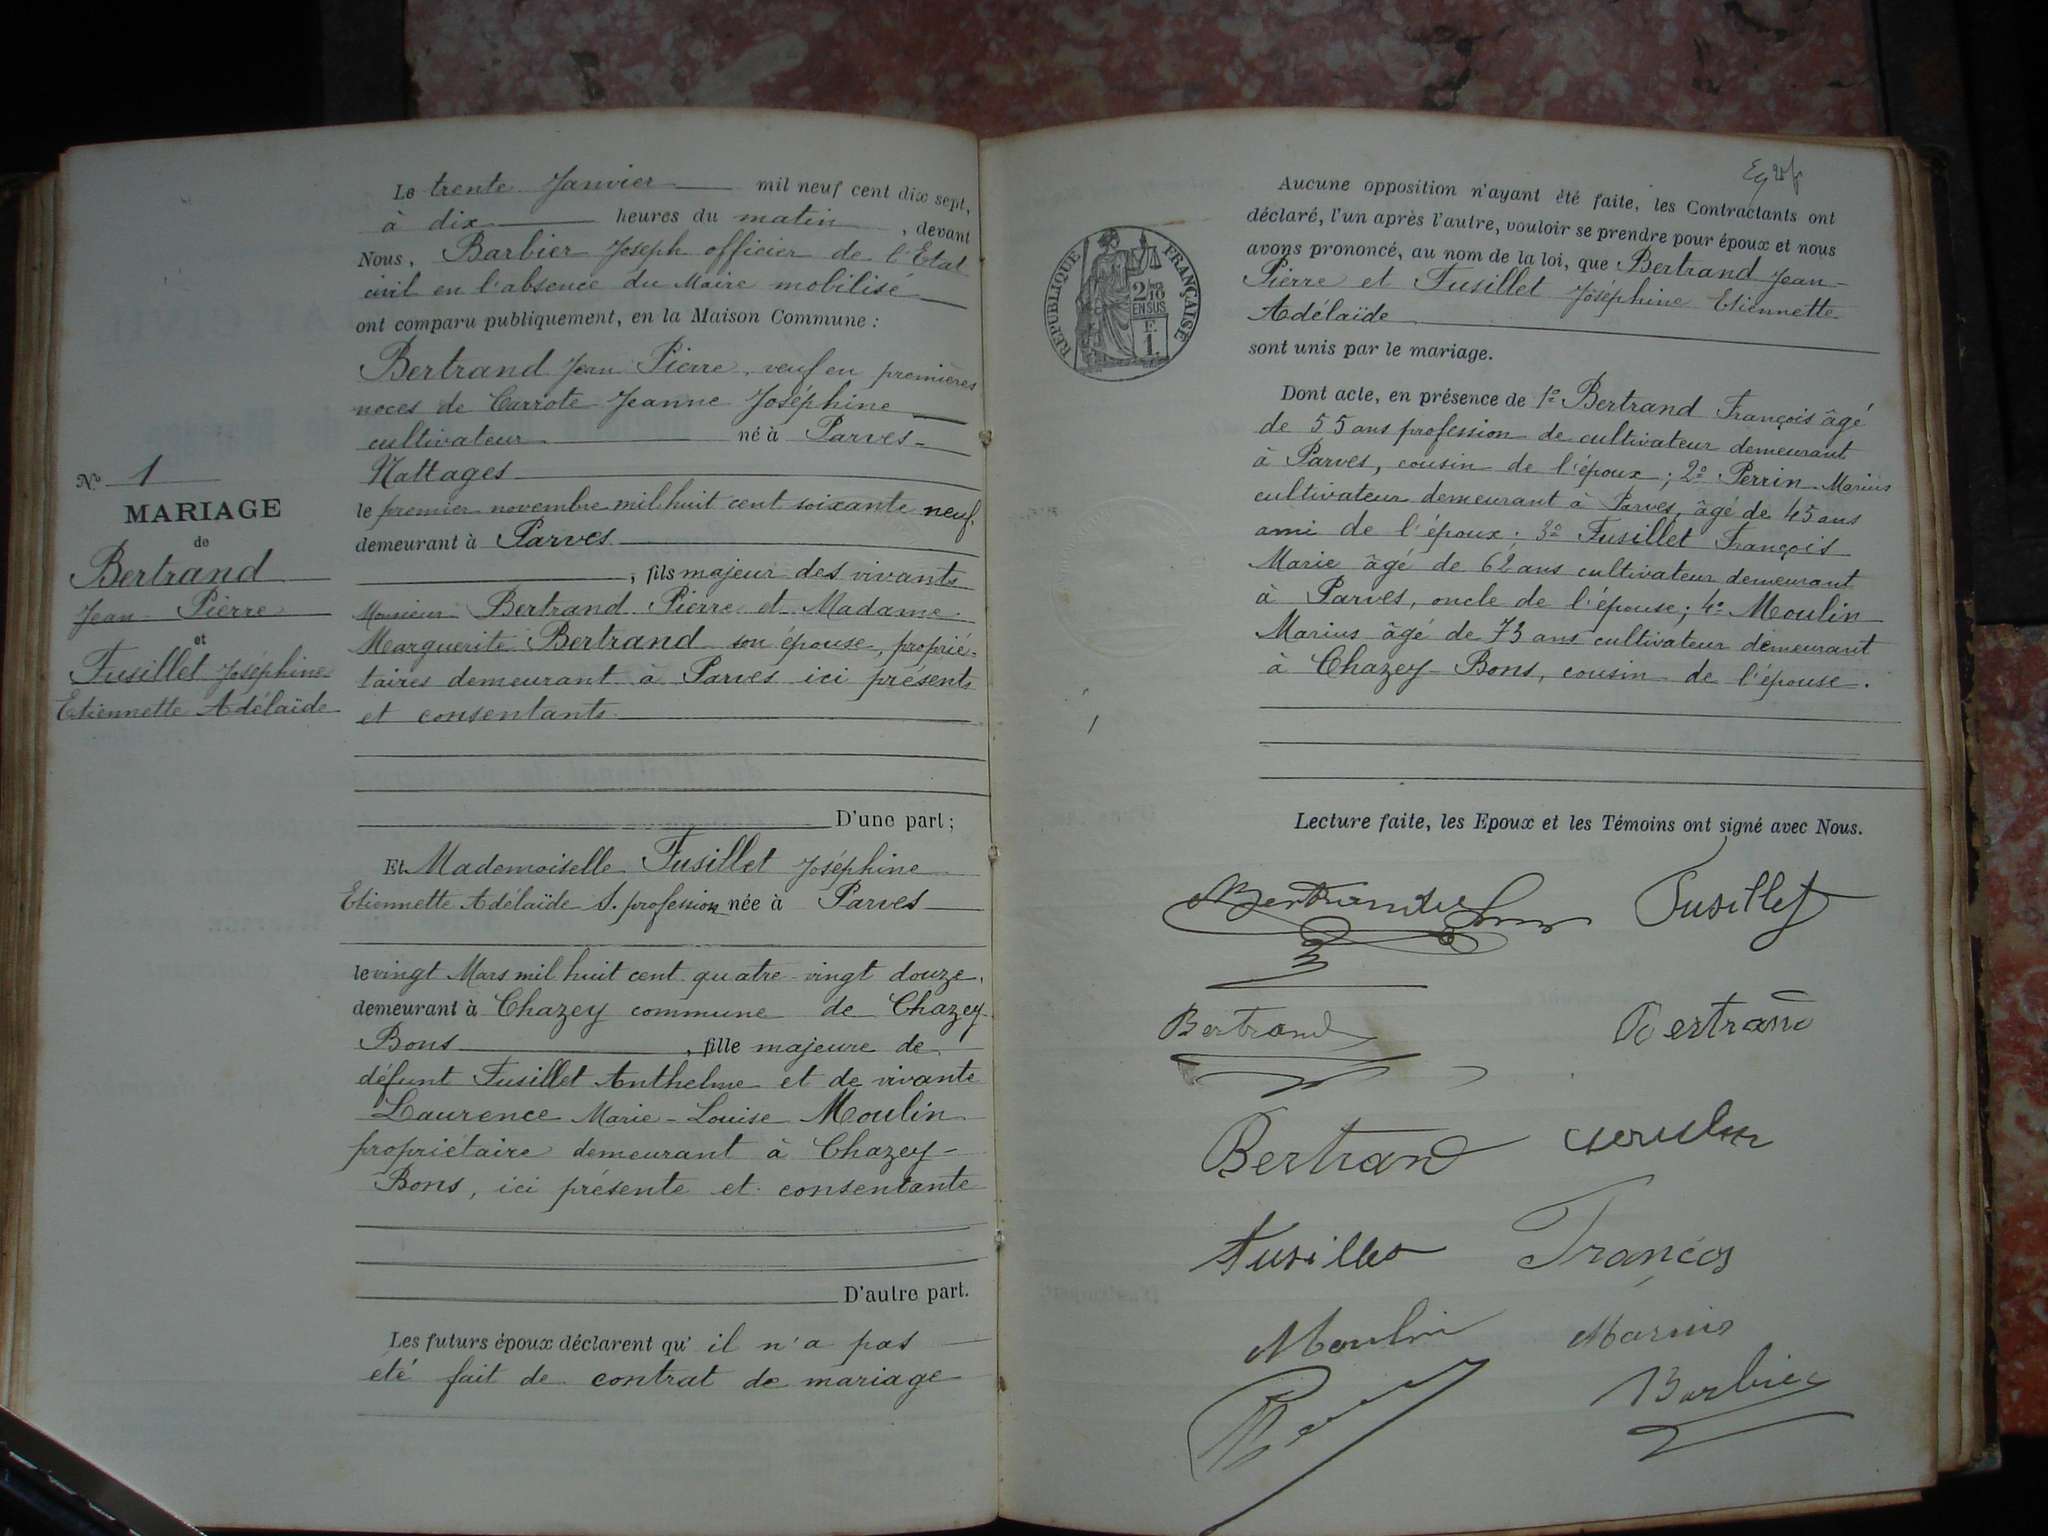 N° 1
MARIAGE
de
Bertrand
Jean Pierre
et
Fusillet Joséphine
Etiennette Adélaïde
Le trente Janvier mil neuf cent dix sept,
à dix heures du matin, devant
Nous, Barbier Joseph officier de l'Etat
civil en l'absence du Maire mobilisé
ont comparu publiquement, en la Maison Commune :
Bertrand Jean Pierre, veuf en premières
noces de Carrote Jeanne Joséphine
cultivateur né à Parves-
Nattages
le premier novembre mil huit cent soixante neuf,
demeurant à Parves
, fils majeur des vivants
Monsieur Bertrand Pierre et Madame
Marguerite Bertrand son épouse, proprié-
taires demeurant à Parves ici présents
et consentants
D'une part ;
Et Mademoiselle Fusillet Joséphine
Etiennette Adélaïde S. profession née à Parves
le vingt Mars mil huit cent quatre-vingt douze,
demeurant à Chazey commune de Chazey-
Bons, fille majeure de
défunt Fusillet Anthelme et de vivante
Laurence Marie-Louise Moulin
propriétaire demeurant à Chazey-
Bons, ici présente et consentante
D'autre part.
Les futurs époux déclarent qu'il n'a pas
été fait de contrat de mariage
RÉPUBLIQUE FRANÇAISE
2/10
EN SUS
F.
1.
Aucune opposition n'ayant été faite, les Contractants ont
déclaré, l'un après l'autre, vouloir se prendre pour époux et nous
avons prononcé, au nom de la loi, que Bertrand Jean-
Pierre et Fusillet Joséphine Etiennette
Adélaïde
sont unis par le mariage.
Dont acte, en présence de 1° Bertrand François âgé
de 55 ans profession de cultivateur demeurant
à Parves, cousin de l'époux ; 2° Perrin Marius
cultivateur demeurant à Parves, âgé de 45 ans
ami de l'époux ; 3° Fusillet François
Marie âgé de 62 ans cultivateur demeurant
à Parves, oncle de l'épouse ; 4° Moulin
Marius âgé de 73 ans cultivateur demeurant
à Chazey-Bons, cousin de l'épouse.
Lecture faite, les Epoux et les Témoins ont signé avec Nous.
Fusillet
Bertrand Bertrand
Bertrand
Fusillet
Moulin Marius
Barbier